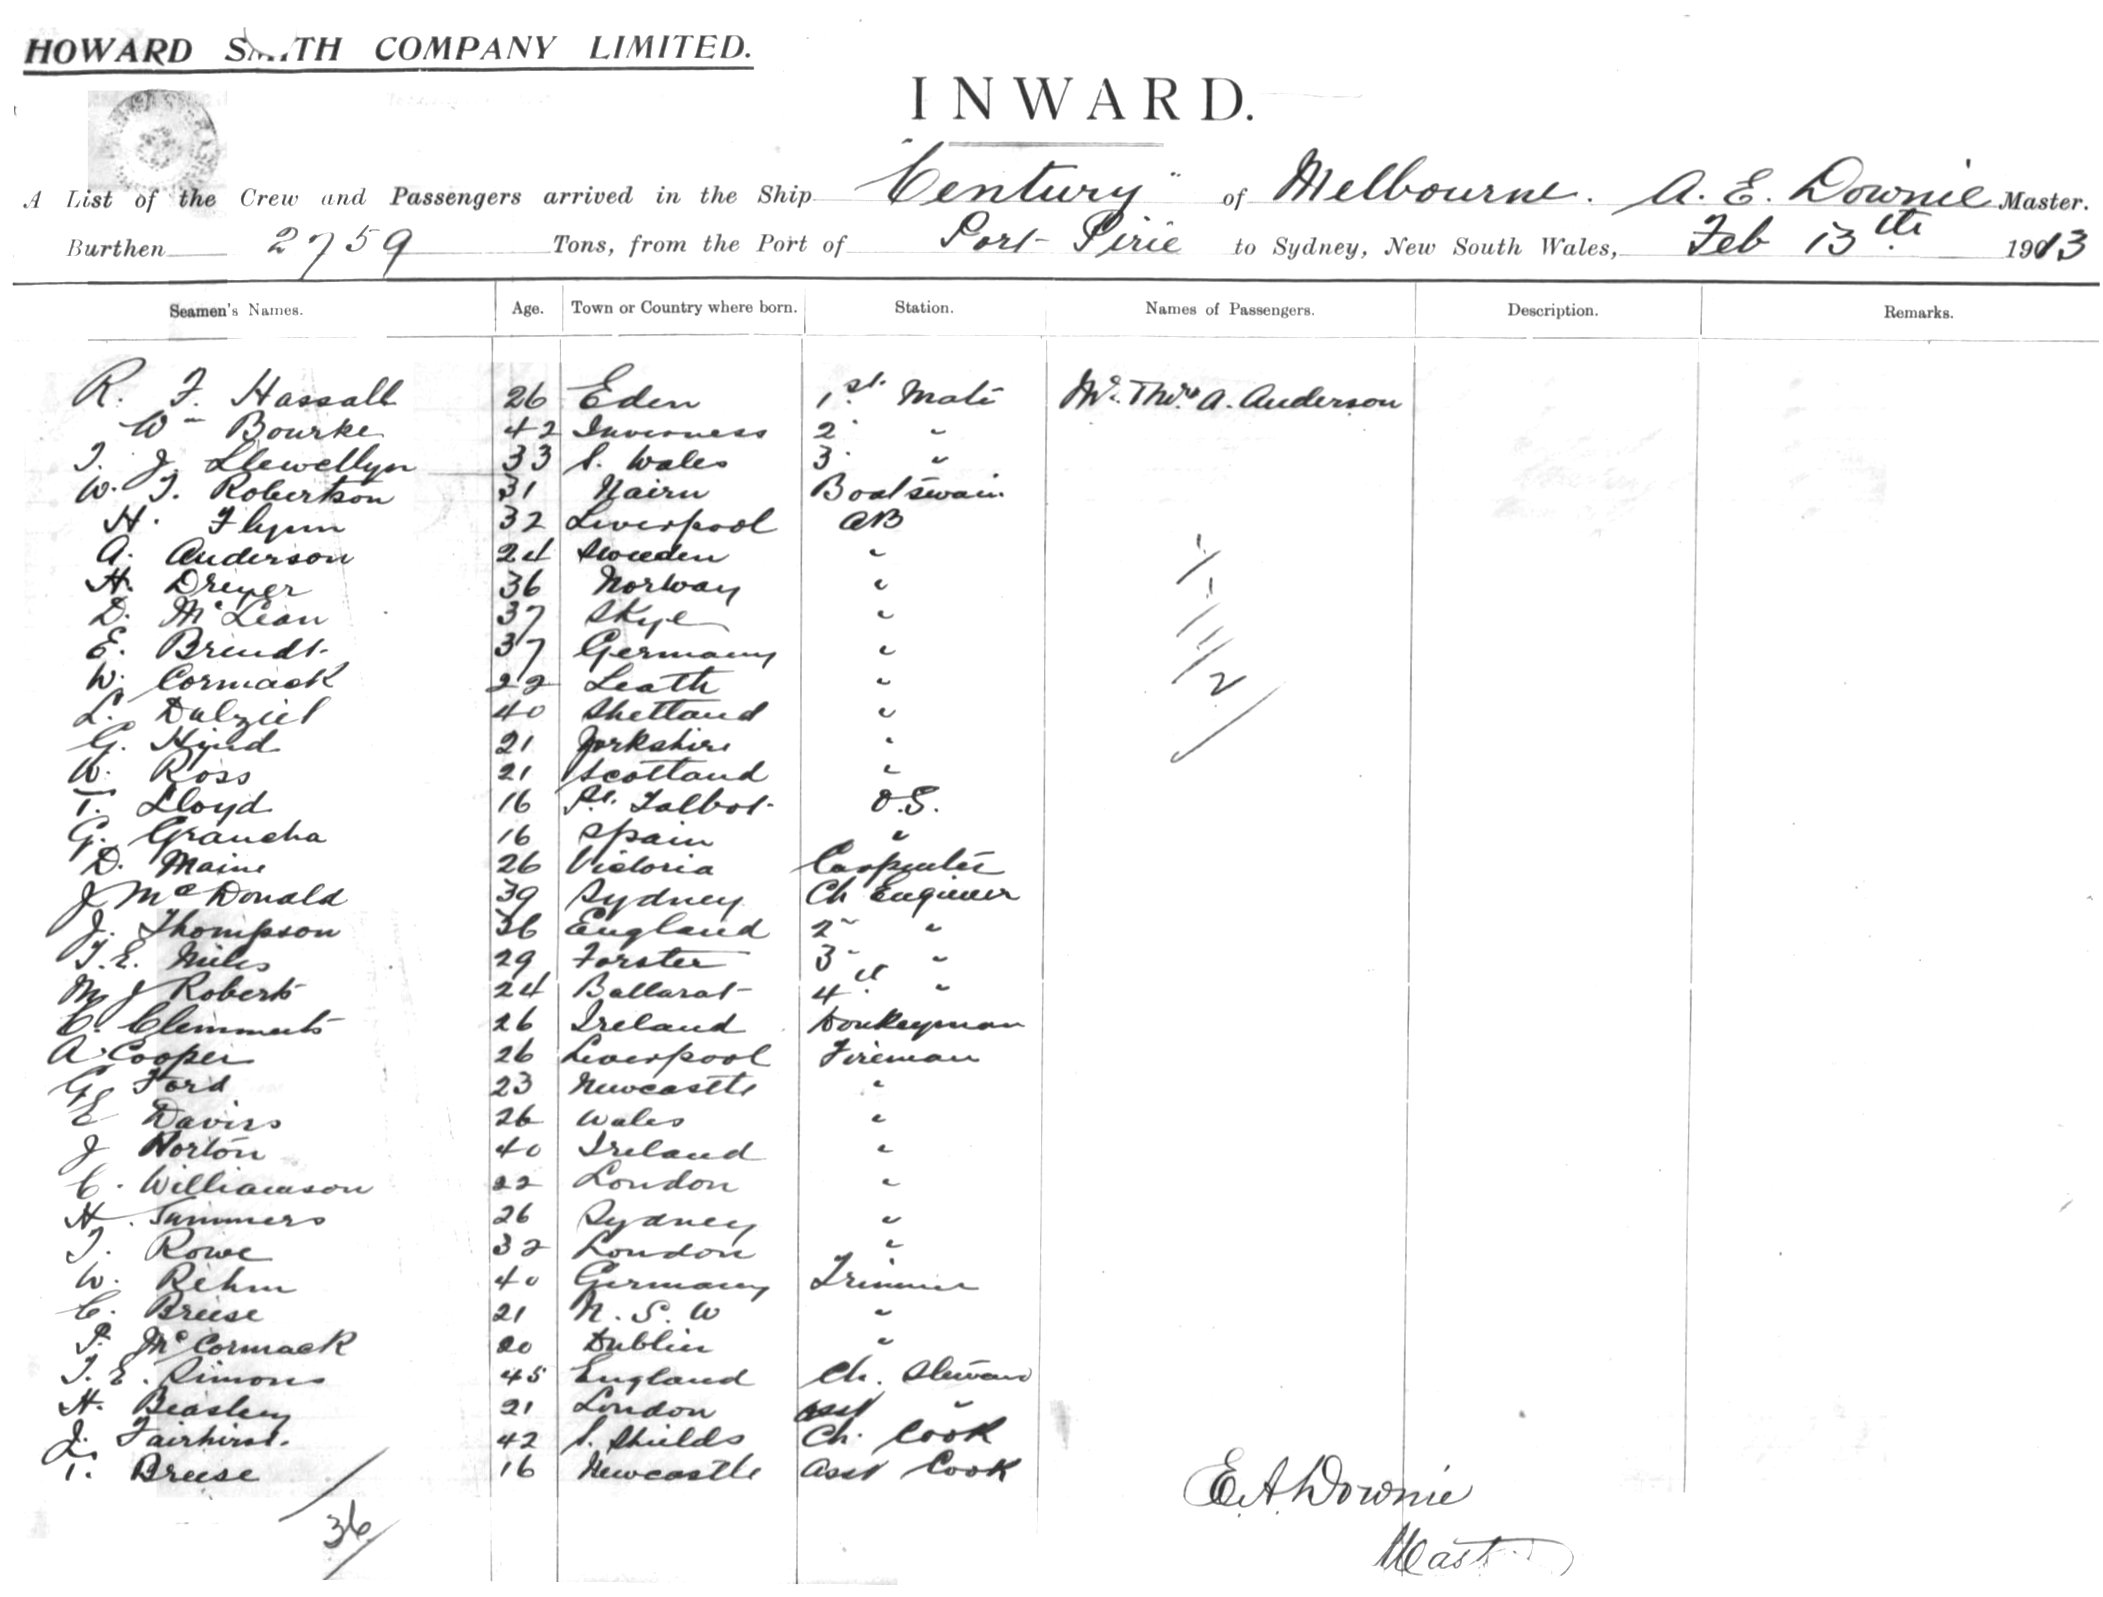 HOWARD SMITH COMPANY LIMITED.
INWARD.
A List of the Crew and Passengers arrived in the Ship "Century" of Melbourne. A. E. Downie Master.
Burthen 2759 Tons, from the Port of Port Pirie to Sydney, New South Wales, Feb 13th 1913
Seamen's Names. Age. Town or Country where born. Station. Names of Passengers. Description. Remarks.
R. F. Hassall 26 Eden 1st. Mate Mr. Thos. A. Anderson
Wm Bourke 42 Inverness 2 "
T. J. Llewellyn 33 S. Wales 3 "
W. T. Robertson 31 Nairn Boatswain
H. Flynn 32 Liverpool AB
A. Anderson 24 Sweden "
H. Dreyer 36 Norway "
D. McLean 37 Skye "
E. Brendt 37 Germany "
W. Cormack 22 Leath "
L. Dalziel 40 Shetland "
G. Hind 21 Yorkshire "
W. Ross 21 Scotland "
T. Lloyd 16 Pt. Talbot O.S.
G. Grancha 16 Spain "
D. Maine 26 Victoria Carpenter
J McDonald 39 Sydney Ch Engineer
J. Thompson 36 England 2 "
T. E. Miles 29 Forster 3 "
M J Roberts 24 Ballarat 4th "
C. Clemments 26 Ireland Donkeyman
A Cooper 26 Liverpool Fireman
G Ford 23 Newcastle "
E Davies 26 Wales "
J Horton 40 Ireland "
C. Williamson 22 London "
H. Summers 26 Sydney "
T. Rowe 32 London "
W. Rehm 40 Germany Trimmer
C. Breese 21 N. S. W "
P. McCormack 20 Dublin "
T. E. Simons 45 England Ch. Steward
H. Beasley 21 London asst "
J. Fairhirst. 42 S. Shields Ch. Cook
T. Breese 16 Newcastle asst Cook
E. A. Downie
36
Mast